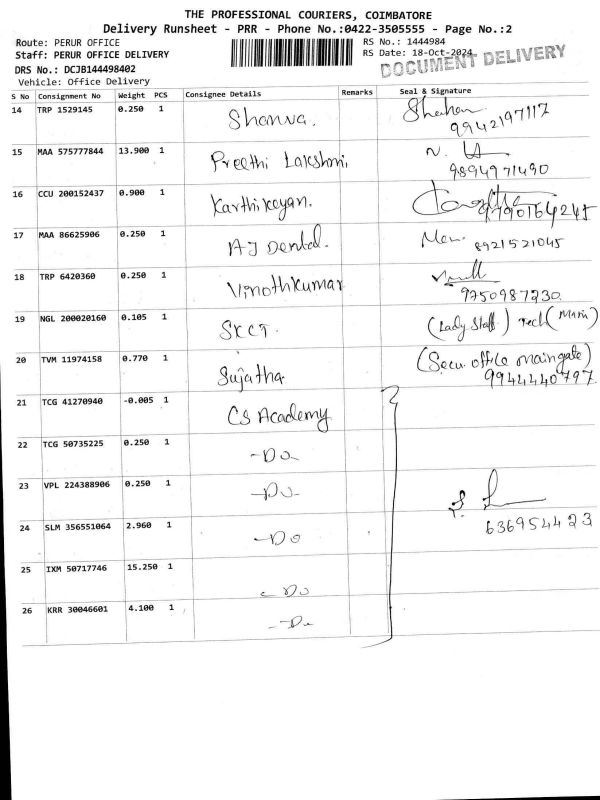 THE PROFESSIONAL COURIERS, COIMBATORE
Delivery Runsheet - PRR - Phone No.:0422-3505555 - Page No.:2
Route: PERUR OFFICE RS No.: 1444984
Staff: PERUR OFFICE DELIVERY RS Date: 18-Oct-2024
DOCUMENT DELIVERY
DRS No.: DCJB144498402
Vehicle: Office Delivery
S No Consignment No Weight PCS Consignee Details Remarks Seal & Signature
14 TRP 1529145 0.250 1 9942197117
15 MAA 575777844 13.900 1 Preethi Lakshmi 9894971490
16 CCU 200152437 0.900 1 Karthikeyan. 9790164245
17 MAA 86625906 0.250 1 AJ Dental. 8921521045
18 TRP 6420360 0.250 1 Vinothkumar 9750987230
19 NGL 200020160 0.105 1 SKCT (Lady Staff) Tech (Main)
20 TVM 11974158 0.770 1 Sujatha (Secu. office maingate)
9944440797
21 TCG 41270940 -0.005 1 CS Academy
22 TCG 50735225 0.250 1 -Do
23 VPL 224388906 0.250 1 -Do-
24 SLM 356551064 2.960 1 -Do 636954423
25 IXM 50717746 15.250 1 -Do
26 KRR 30046601 4.100 1 -Do